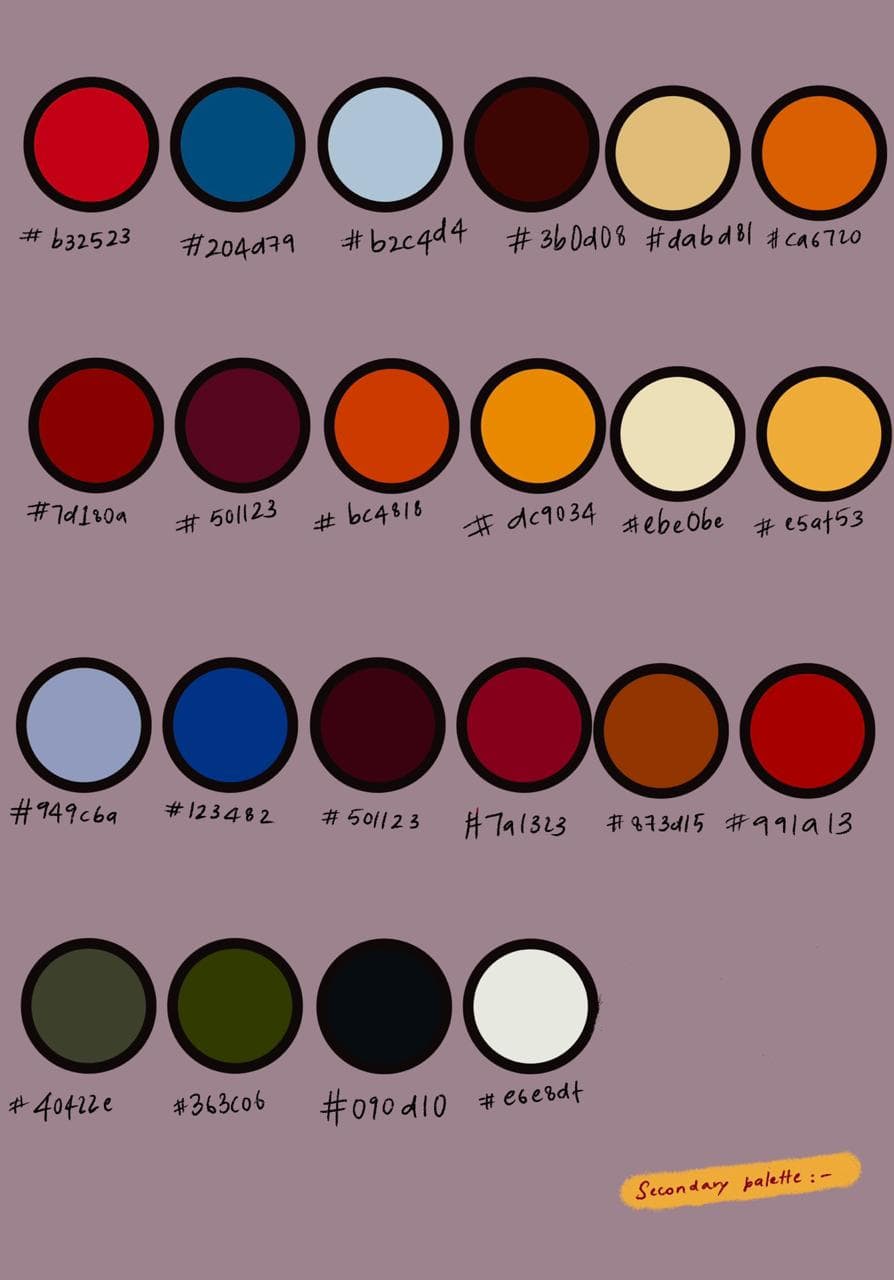 #b32523 #204d79 #b2c4d4 #3b0d08 #dabd81 #ca6720
#7d180a #501123 #bc4818 #dc9034 #ebe0be #e5af53
#949cba #123482 #501123 #7a1323 #873d15 #991a13
#40422e #363c06 #090d10 #e6e8df
Secondary palette :-